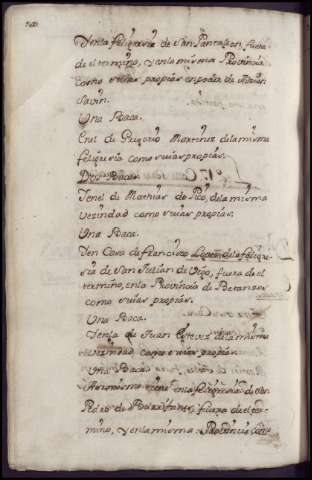 Yenla feligresia de San Pantaleon, fuera
de el termino, y enla misma Provincia
como suias propias en poder de
Savin.
Una Baca.
En el de Gregorio Martinez dela misma
feligresia como suias propias.
Dos Bacas.
Yenel de Mathias de Pico, dela misma
Vezindad como suias propias.
Una Baca.
En Casa de francisco Lopez dela feligre-
sia de San Julian de Vigo, fuera de el
termino, enla Provincia de Betanzos
como suias propias.
Una Baca.
Yenla de Juan Estevez dela misma
vezindad como suias propias.
Una Baca
Asimismo tiene enla feligresia de San
Pedro de fuera de el ter-
mino, y enla misma Provincia